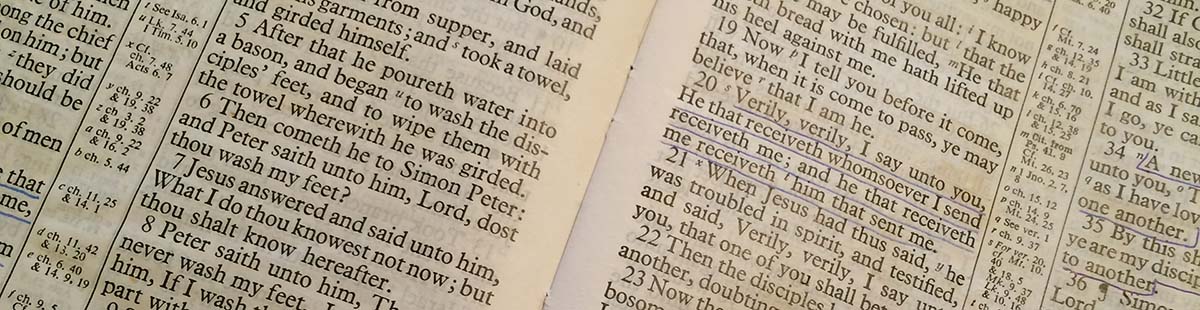 ong the chief
on him; but
they did
should be
of men
that
me,
t See Isa. 6. 1
u Lk. 7. 44
1 Tim. 5. 10
x Cf.
ch. 7. 48
Acts 6. 7
y ch. 9. 22
& 19. 38
z ch. 3. 2
& 19. 38
a ch. 9. 22
& 16. 2
b ch. 5. 44
c ch. 11. 25
& 14. 1
d ch. 11. 42
& 13. 20
e ch. 6. 40
& 14. 9, 19
f ch. 9. 5
from supper, and laid
his garments; and s took a towel,
and girded himself.
5 After that he poureth water into
a bason, and began u to wash the dis-
ciples' feet, and to wipe them with
the towel wherewith he was girded.
6 Then cometh he to Simon Peter:
and Peter saith unto him, Lord, dost
thou wash my feet?
7 Jesus answered and said unto him,
What I do thou knowest not now; but
thou shalt know hereafter.
8 Peter saith unto him,
never wash my feet.
him, If I wash
part with
God, and
of you all: I know
chosen: but that the
may be fulfilled, m He that
bread with me hath lifted up
his heel against me.
19 Now p I tell you before it come,
that, when it is come to pass, ye may
believe r that I am he.
20 s Verily, verily, I say unto you,
He that receiveth whomsoever I send
receiveth me; and he that receiveth
me receiveth t him that sent me.
21 x When Jesus had thus said, y he
was troubled in spirit, and testified,
and said, Verily, verily, I say unto
you, that one of you shall bet
another, doubting
22 Then the disciples
23 Now the
bosom
happy
Mt. 7. 24
g ch. 12. 35
& 14. 19
h ch. 8. 21
k ch. 6. 70
& 15. 16
l ch. 12. 38
& 15. 25
m Cit. from
Ps. 41. 9
Cf.
Mt. 26. 23
o ch. 15. 12
p ch. 14. 9
Mt. 24. 25
q See ver. 1
r ch. 9. 37
s For ver. 20,
cf. Mt. 10.
40
& 18. 5
Mk. 9. 37
Lk. 9. 48
& 10. 16
32 If
shall also
shall stra
33 Little
I am with
and as I sa
I go, ye ca
to you.
34 A new
unto you,
as I have lo
one another.
35 By this sh
ye are my disci
to another.
36 Simo
Lord